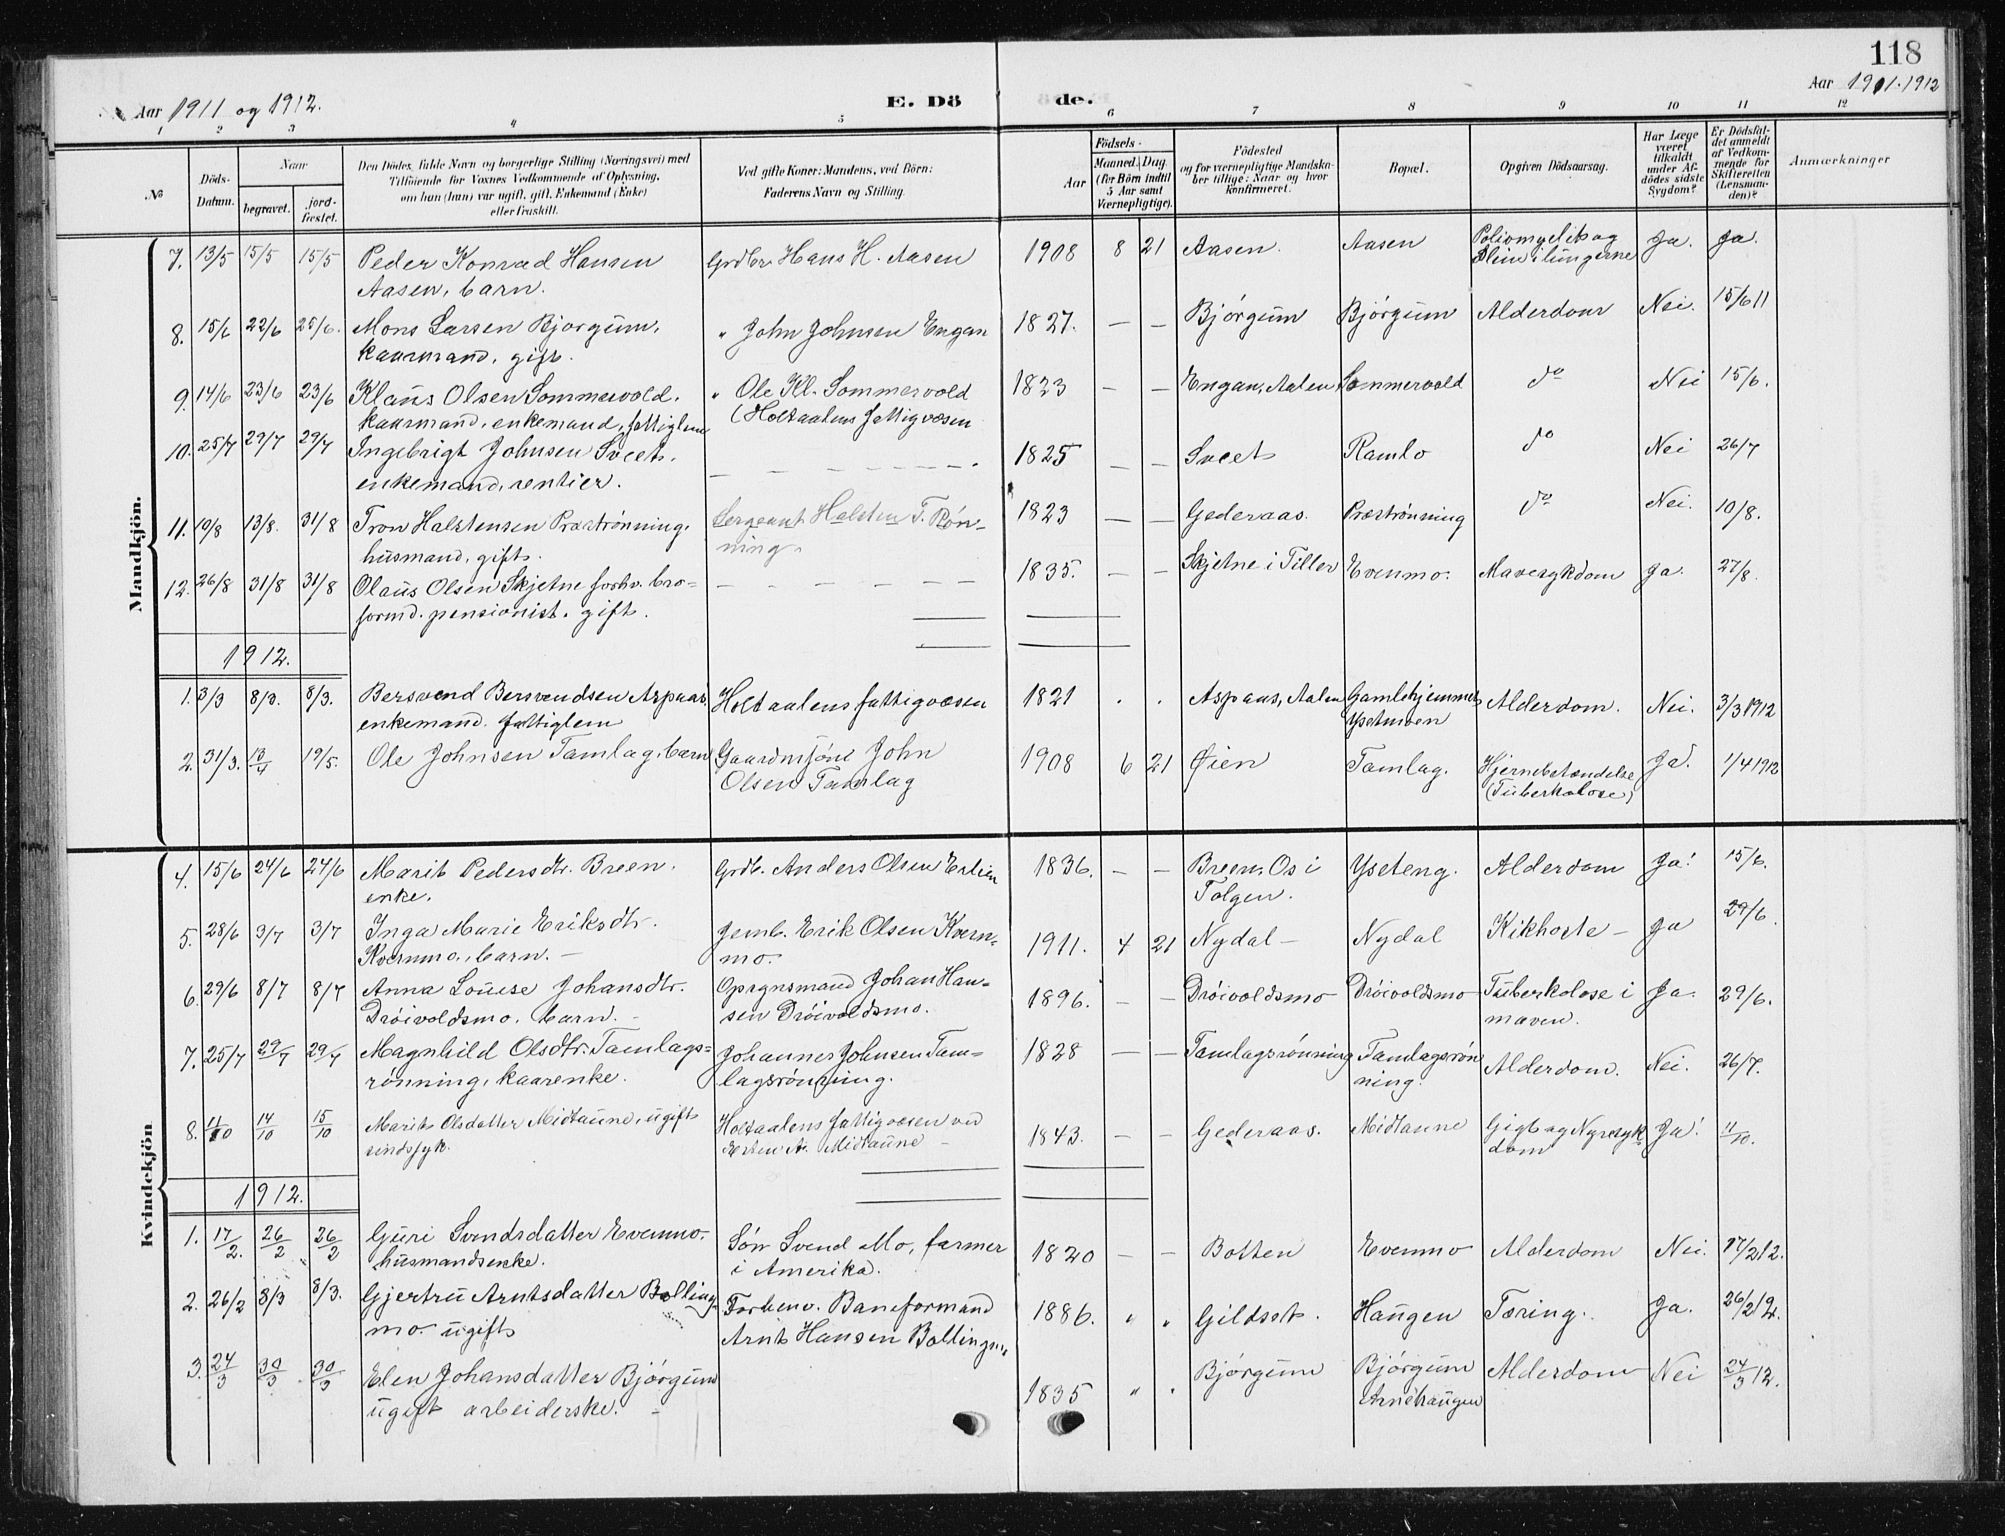 118
Aar 1911 og 1912.
E. Dö de.
Aar 1911-1912
1 2 3 4 5 6 7 8 9 10 11 12
№
Döds-Datum.
Naar
begravet.
jord-fæstet.
Den Dödes fulde Navn og borgerlige Stilling (Næringsvei) med
Tilföiende for Voxnes Vedkommende af Oplysning,
om han (hun) var ugift, gift, Enkemand (Enke)
eller fraskilt.
Ved gifte Koner: Mandens, ved Börn:
Faderens Navn og Stilling.
Födsels-
Aar
Maaned. Dag
(for Börn indtil
5 Aar samt
Værnepligtige).
Födested
og for værnepligtige Mandska-
ber tillige: Naar og hvor
konfirmeret.
Bopæl.
Opgiven Dödsaarsag.
Har Læge
været
tilkaldt
under Af-
dödes sidste
Sygdom?
Er Dödsfal-
det anmeldt
af Vedkom-
mende for
Skifteretten
(Lensman-
den)?
Anmærkninger
Mandkjön.
7. 13/5 15/5 15/5 Peder Konrad Hansen Grdbr. Hans H. Aasen 1908 8 21 Aasen. Aasen Poliomyelit og Ja. Ja.
Aasen, barn. Slim i lungerne
8. 15/6 22/6 25/6. Mons Larsen Bjørgum, " John Johnsen Engan 1827. — — Bjørgum Bjørgum Alderdom Nei. 15/6 11
kaarmand, gift.
9. 14/6 23/6 23/6 Klaus Olsen Sommervold. " Ole Kl. Sommervold 1823 — — Engan, Aalen Sommervold do Nei 15/6.
kaarmand, enkemand, fattiglem (Holtaalens fattigvæsen
10. 25/7 29/7 29/7 Ingebrigt Johnsen Sveet. — — — — 1825 — — Sveet Ramlo do Nei 26/7
enkemand, rentier.
11. 19/8 13/8. 31/8 Tron Halstensen Præstrønning, Sergeant Halsten T. Røn- 1823 — — Gederaas. Præstrønning do Nei. 10/8.
husmand, gift. ning.
12. 26/8 31/8 31/8 Olaus Olsen Skjetne forhv. bro- — — — — 1835. — — Skjetne i Tiller Evenmo. Mavesykdom Ja. 27/8.
formd. pensionist. gift.
1912.
1. 3/3 8/3. 8/3. Bersvend Bersvendsen Aspaas, Holtaalens fattigvæsen 1821 . . Aspaas, Aalen Gamlehjemmet Alderdom. Nei. 3/3 1912
enkemand. fattiglem Ysetmoen
2. 31/3. 13/4 19/5. Ole Johnsen Tamlag, barn Gaardmkjøne John 1908 6 21 Øien Tamlag. Hjernebetændelse Ja. 1/4 1912
Olsen Tamlag (Tuberkolose)
Kvindekjön
4. 15/6 24/6 24/6 Marit Pedersdtr. Breen. Grdb. Anders Olsen Erlien 1836. — — Breen, Os i Yseteng. Alderdom Ja. 15/6.
enke. Tolgen.
5. 28/6 3/7 3/7 Inga Marie Eriksdtr. Jernb. Erik Olsen Kvern- 1911. 4 21 Nydal — Nydal Kikhoste — Ja 29/6.
Kvernmo, barn. — mo.
6. 29/6 8/7 8/7 Anna Louise Johansdtr. Opsynsmand Johan Han- 1896. — — Drøivoldsmo Drøivoldsmo Tuberkolose i Ja. 29/6.
Drøivoldsmo, barn. — sen Drøivoldsmo. maven.
7. 25/7 29/7 29/7 Magnhild Olsdtr. Tamlags- Johannes Johnsen Tam- 1828 — — Tamlagsrønning Tamlagsrøn Alderdom. Nei. 26/7.
rønning, kaarenke. lagsrønning. ning.
8. 11/10 14/10 15/10 Marit Olsdatter Midtaune, ugift Holtaalens fattigvæsen ved 1843. — — Gederaas. Midtaune Gigt og Nyresyk Ja. 11/10.
sindssyk. Esten A. Midtaune — dom
1912.
1. 17/2. 26/2 26/2 Guri Svendsdatter Evenmo, Søn Svend Mo, farmer 1820 — — Botten Evenmo Alderdom Nei. 17/2 12.
husmandsenke. i Amerika.
2. 26/2 8/3 8/3. Gjertru Arntsdatter Bolling- Forhenv. Baneformand 1886. " " Gildset. Haugen Tæring. Ja. 26/2 12.
mo. ugift Arnt Hansen Bollingmo
3. 24/3 30/3 30/3 Elen Johansdatter Bjørgum 1835 " . Bjørgum Bjørgum Alderdom Nei 24/3 12.
ugift arbeiderske. — Arnehaugen